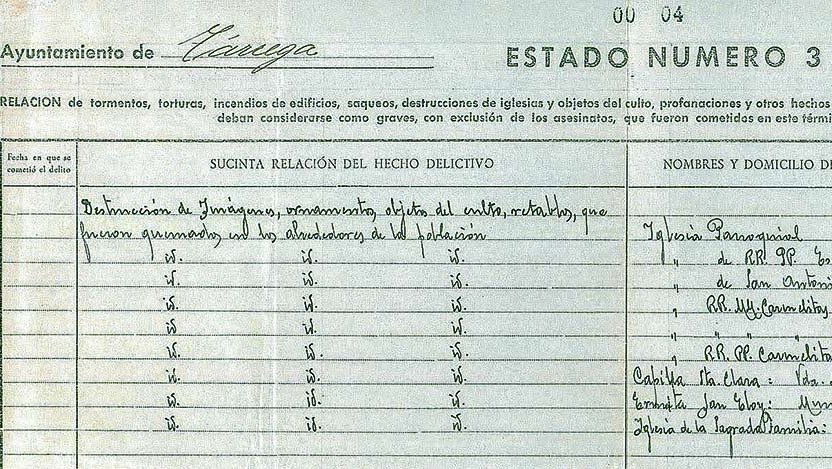 00 04
Ayuntamiento de Tárrega
ESTADO NUMERO 3
RELACION de tormentos, torturas, incendios de edificios, saqueos, destrucciones de iglesias y objetos del culto, profanaciones y otros hechos
deban considerarse como graves, con exclusión de los asesinatos, que fueron cometidos en este térmi
Fecha en que se
cometió el delito
SUCINTA RELACIÓN DEL HECHO DELICTIVO
NOMBRES Y DOMICILIO DE
Destrucción de Imágenes, ornamentos, objetos del culto, retablos, que
fueron quemados en los alrededores de la población Iglesia Parroquial
id. id. id. " de RR. PP. Es
id. id. id. " de San Antoni
id. id. id. " RR. MM. Carmelitas
id. id. id. " " "
id. id. id. " RR. PP. Carmelita
id. id. id. Capilla Sta. Clara: Vda.
id. id. id. Ermita San Eloy: Mun
id. id. id. Iglesia de la Sagrada Familia: